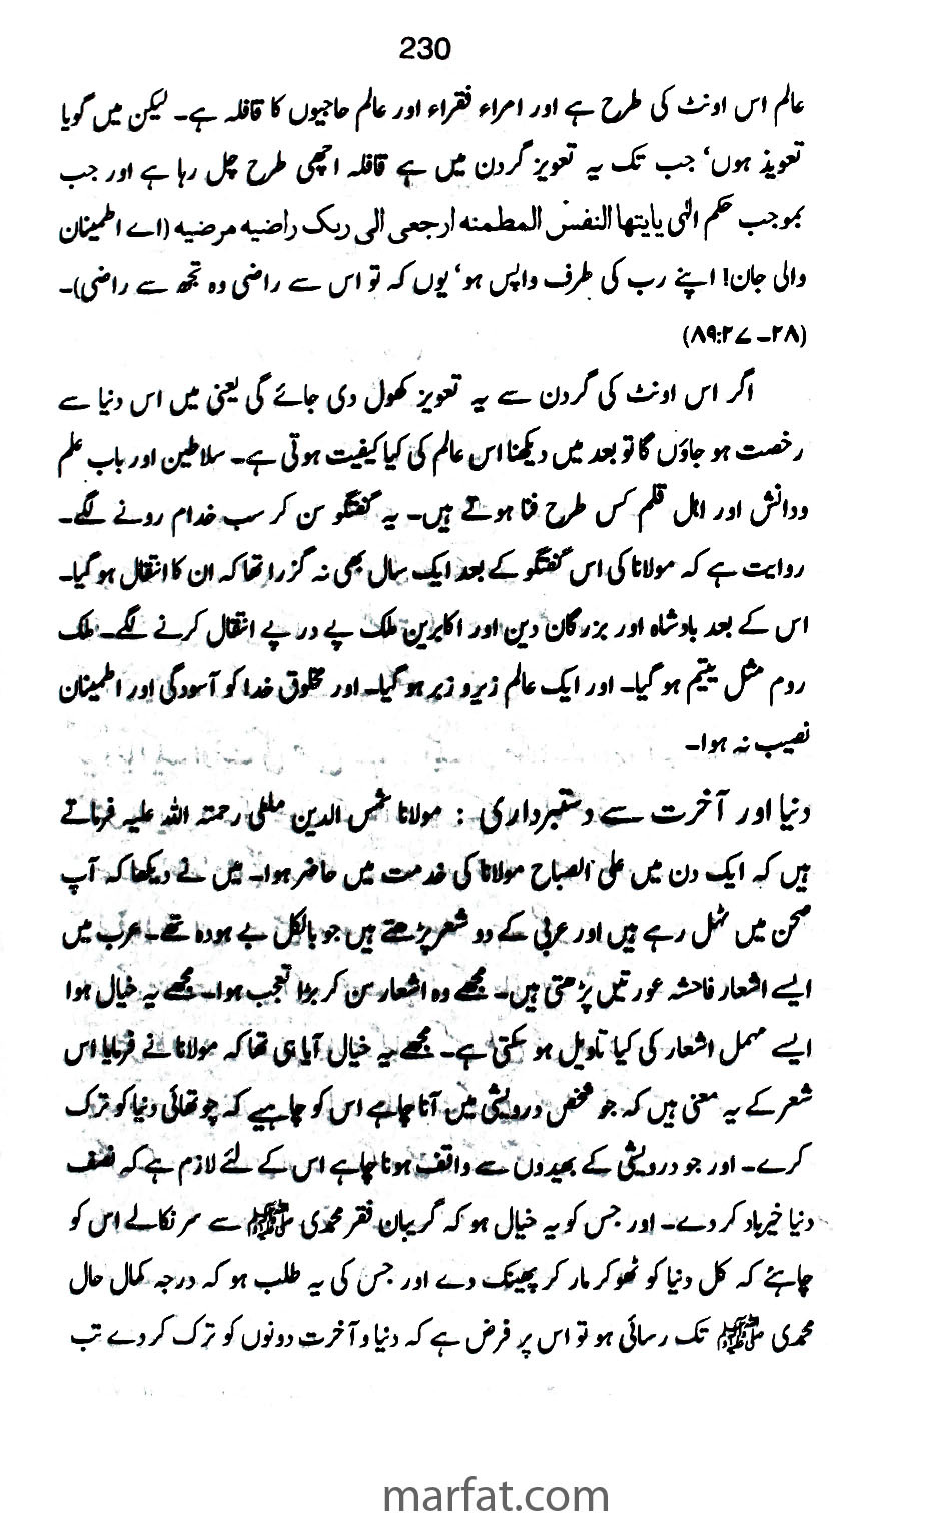 230
عالم اس اونٹ کی طرح ہے اور امراء فقراء اور عالم حاجیوں کا قافلہ ہے۔ لیکن میں گویا
تعویذ ہوں‘ جب تک یہ تعویز گردن میں ہے قافلہ اچھی طرح چل رہا ہے اور جب
بموجب حکم الٰہی یایتھا النفس المطمنہ ارجعی الی ربک راضیہ مرضیہ (اے اطمینان
والی جان! اپنے رب کی طرف واپس ہو‘ یوں کہ تو اس سے راضی وہ تجھ سے راضی)۔
(۸۹:۲۷۔۲۸)
اگر اس اونٹ کی گردن سے یہ تعویز کھول دی جائے گی یعنی میں اس دنیا سے
رخصت ہو جاؤں گا تو بعد میں دیکھنا اس عالم کی کیا کیفیت ہوتی ہے۔ سلاطین اور باب علم
ودانش اور اہل قلم کس طرح فنا ہوتے ہیں۔ یہ گفتگو سن کر سب خدام رونے لگے۔
روایت ہے کہ مولانا کی اس گفتگو کے بعد ایک سال بھی نہ گزرا تھا کہ ان کا انتقال ہو گیا۔
اس کے بعد بادشاہ اور بزرگان دین اور اکابرین ملک پے در پے انتقال کرنے لگے۔ ملک
روم مثل یتیم ہو گیا۔ اور ایک عالم زیر و زبر ہو گیا۔ اور مخلوق خدا کو آسودگی اور اطمینان
نصیب نہ ہوا۔
دنیا اور آخرت سے دستبرداری : مولانا شمس الدین ملطی رحمتہ اللہ علیہ فرماتے
ہیں کہ ایک دن میں علی الصباح مولانا کی خدمت میں حاضر ہوا۔ میں نے دیکھا کہ آپ
صحن میں ٹہل رہے ہیں اور عربی کے دو شعر پڑھتے ہیں جو بالکل بے ہودہ تھے۔ عرب میں
ایسے اشعار فاحشہ عورتیں پڑھتی ہیں۔ مجھے وہ اشعار سن کر بڑا تعجب ہوا۔ مجھے یہ خیال ہوا
ایسے مہمل اشعار کی کیا تاویل ہو سکتی ہے۔ مجھے یہ خیال آیا ہی تھا کہ مولانا نے فرمایا اس
شعر کے یہ معنی ہیں کہ جو شخص درویشی میں آنا چاہے اس کو چاہیے کہ چوتھائی دنیا کو ترک
کرے۔ اور جو درویشی کے بھیدوں سے واقف ہونا چاہے اس کے لئے لازم ہے کہ نصف
دنیا خیرباد کر دے۔ اور جس کو یہ خیال ہو کہ گریبان فقر محمدی ﷺ سے سر نکالے اس کو
چاہئے کہ کل دنیا کو ٹھوکر مار کر پھینک دے اور جس کی یہ طلب ہو کہ درجہ کمال حال
محمدی ﷺ تک رسائی ہو تو اس پر فرض ہے کہ دنیا و آخرت دونوں کو ترک کر دے تب
marfat.com